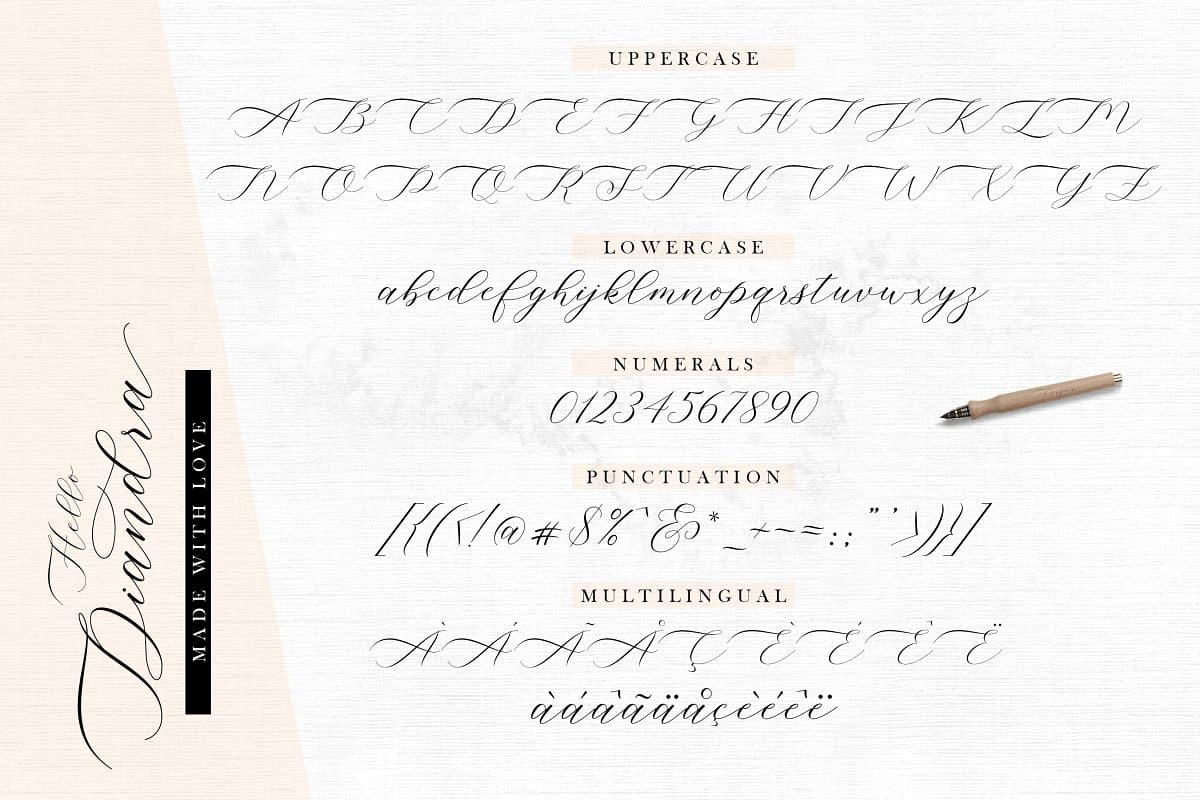 UPPERCASE
A B C D E F G H I J K L M
N O P Q R S T U V W X Y Z
LOWERCASE
abcdefghijklmnopqrstuvwxyz
NUMERALS
01234567890
PUNCTUATION
[{(<!@#$%`&*_+-=:;"'>)}]
MULTILINGUAL
ÀÁÃÅÇÈÉÊË
àáâãäåçèéêë
Hello
Diandra
MADE WITH LOVE